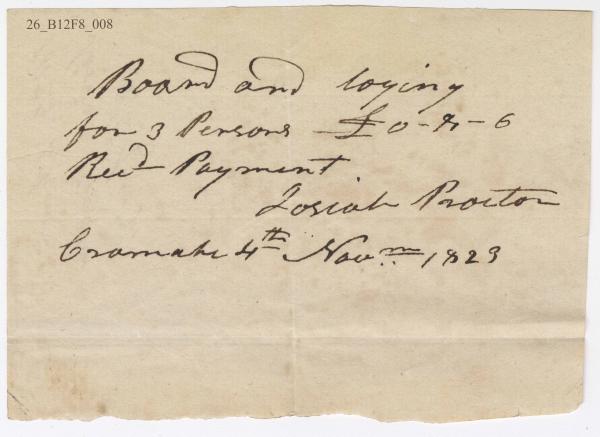 26_B12F8_008
Board and loging
for 3 Persons £0-8-6
Recd Payment
Josiah Proctor
Cramahe 4th Novm 1823